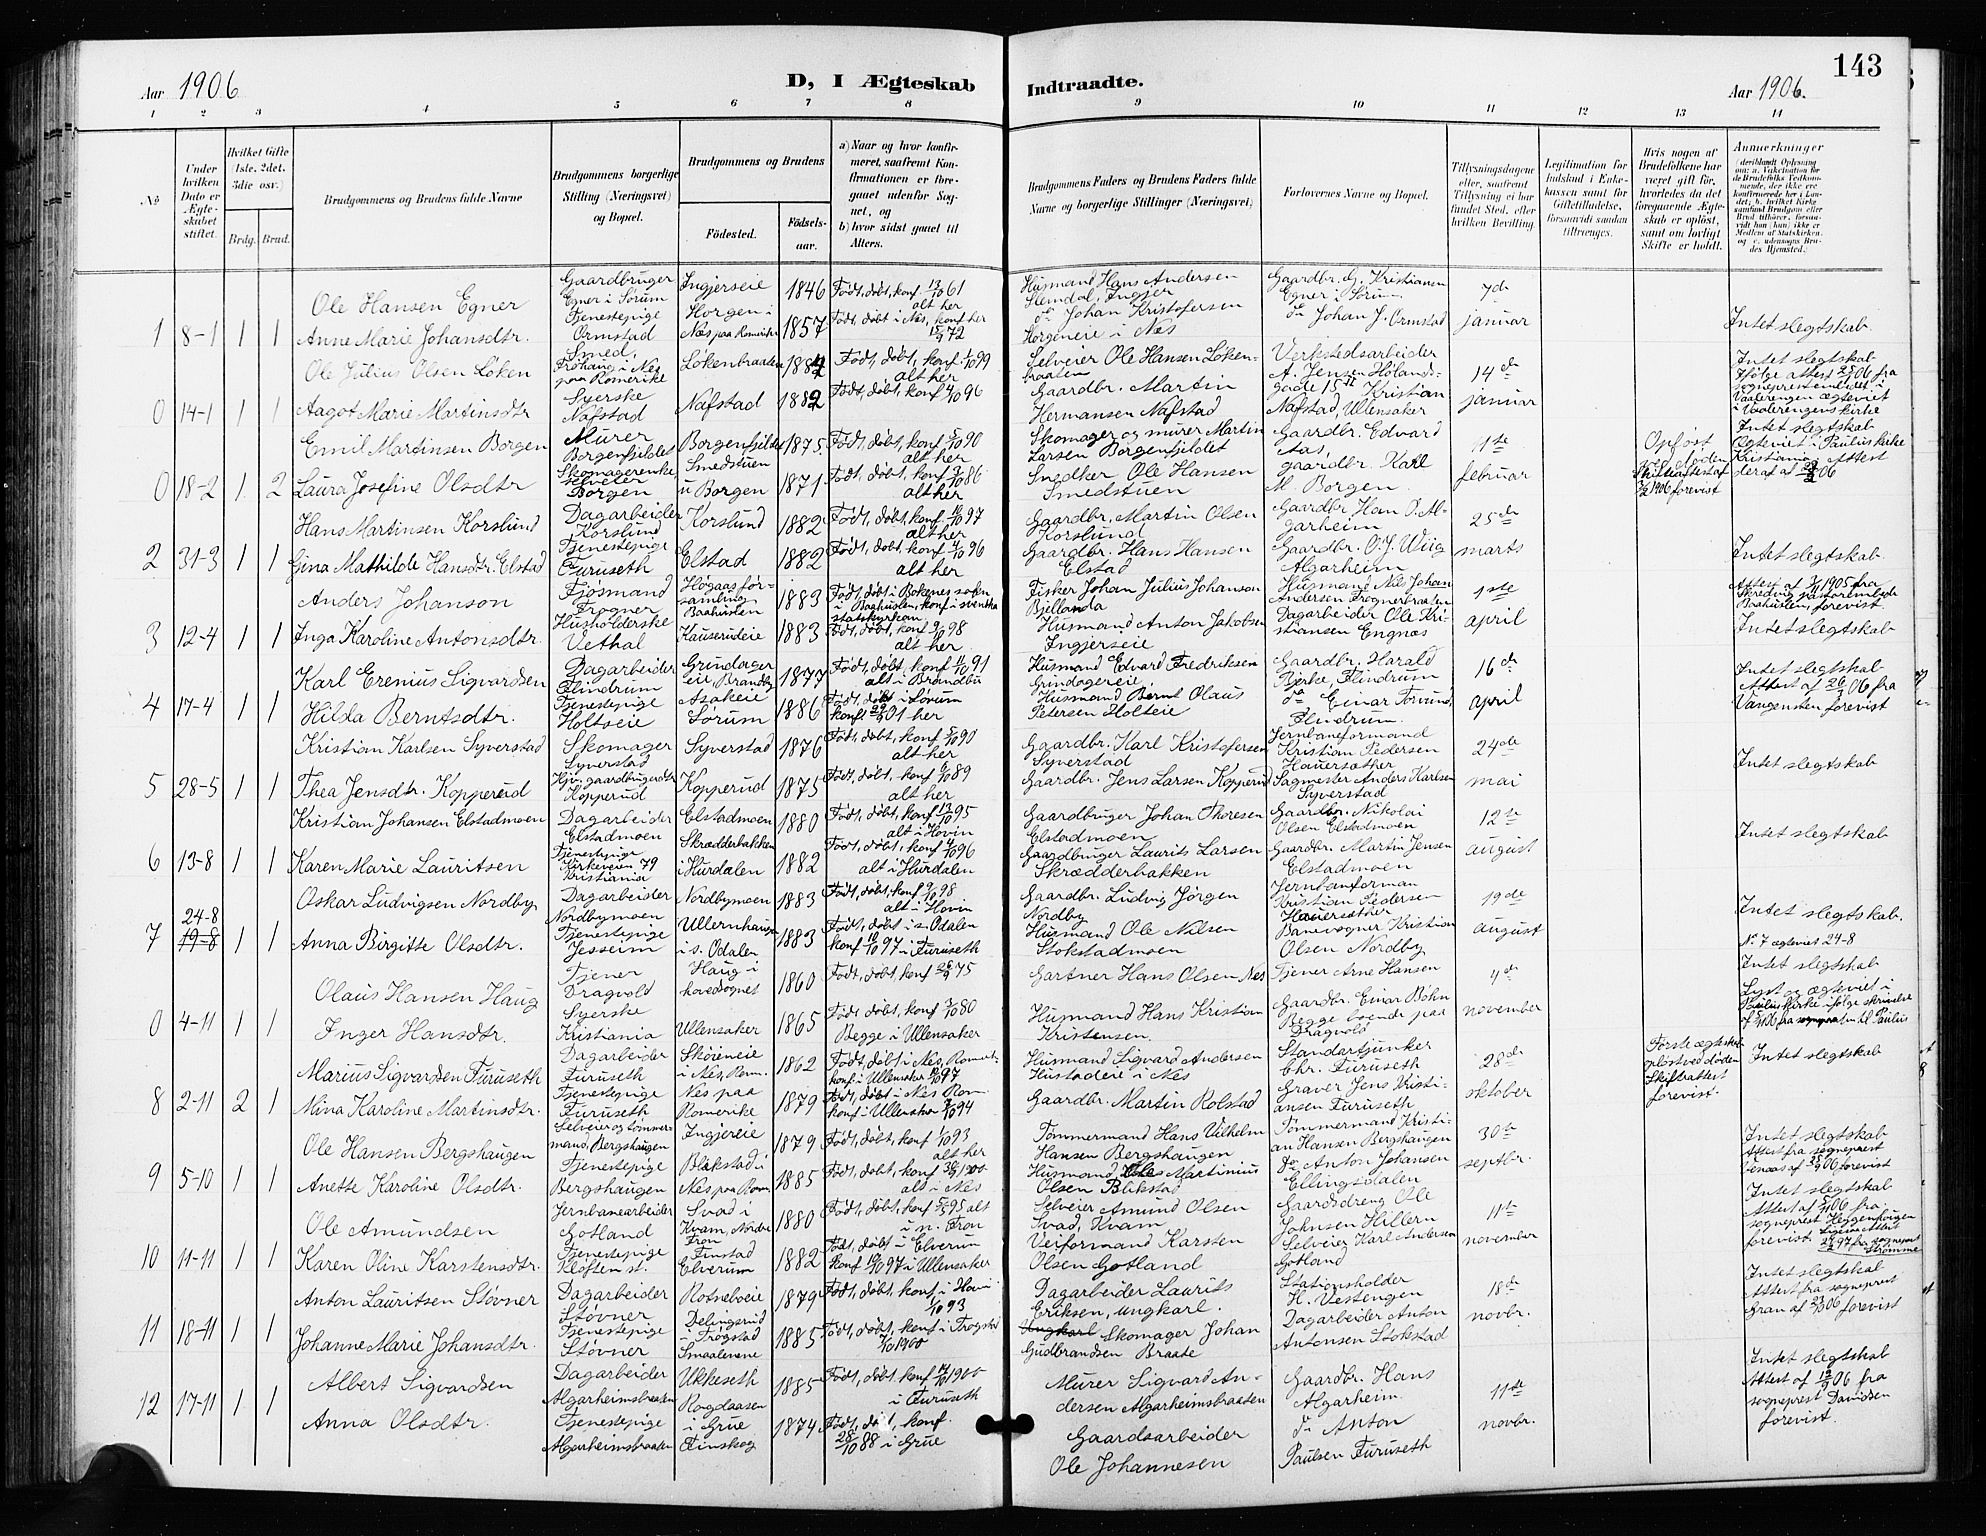 143
Aar 1906
D, I Ægteskab
Indtraadte.
Aar 1906.
1 2 3 4 5 6 7 8 9 10 11 12 13 14
No
Under hvilken Dato er Ægteskabet stiftet.
Hvilket Gifte (1ste, 2det, 3die osv.)
Brdg. Brud.
Brudgommens og Brudens fulde Navne
Brudgommens borgerlige Stilling (Næringsvei) og Bopæl.
Brudgommens og Brudens
Fødested.
Fødselsaar.
a) Naar og hvor konfirmeret, saafremt Konfirmationen er foregaaet udenfor Sognet, og
b) hvor sidst gaaet til Alters.
Brudgommens Faders og Brudens Faders fulde Navne og borgerlige Stillinger (Næringsvei)
Forlovernes Navne og Bopæl.
Tillysningsdagene eller, saafremt Tillysning ei har fundet Sted, efter hvilken Bevilling.
Legitimation for Indskud i Enkekassen samt for Giftetilladelse, forsaavidt saadan tiltrænges.
Hvis nogen af Brudefolkene har været gift før, hvorledes da det foregaaende Ægteskab er opløst, samt om lovligt Skifte er holdt.
Anmærkninger
1 8-1 1 1
Ole Hansen Egner
Gaardbruger Egner i Sørum
Ingjerseie
1846
Født, døbt, konf. 13/10 61 alt her
Husmand Hans Andersen Slemdal, Ingjer
Gaardbr. G. Kristiansen Egner i Sørum
7de januar
Anne Marie Johansdtr.
Tjenestepige Ormstad
Horgen i Nes paa Romerike
1857
Født, døbt i Nes, konf. her 15/9 72
do Johan Kristofersen Horgeneie i Nes
do Johan J. Ormstad
Intet slegtskab
0 14-1 1 1
Ole Julius Olsen Løken
Smed, Frøhaug i Nes paa Romerike
Løkenbraaten
Født, døbt, konf. 1/10 99 alt her
Selveier Ole Hansen Løkenbraaten
Verkstedsarbeider A. Jensen Hølandsgade 15 II
14de januar
Aagot Marie Martinsdtr
Syerske Nafstad
Nafstad
1882
Født, døbt, konf. 4/10 96
Gaardbr. Martin Hermansen Nafstad
Kristian Nafstad, Ullensaker
Intet slegtskab
Ifølge attest 25/1 06 fra sogneprestembedet i Vaalerengen ægteviet i Vaalerengens kirke
0 18-2 1 2
Emil Martinsen Borgen
Murer Borgenfjeldet
Borgenfjeldet
1875
Født, døbt, konf. 5/10 90 alt her
Skomager og murer Martin Larsen Borgenfjeldet
Gaardbr. Edvard Aas,
11te februar
Laura Josefine Olsdtr
Skomagerenke, selveier Borgen
Smedstuen u Borgen
1871
Født, døbt, konf. 3/10 86 alt her
Smedker Ole Hansen Smedstuen
gaardbr. Karl M. Borgen
Opløst v. døden Skifteattest af 3/2 1906 forevist
Intet slegtskab
Ægteviet i Paulus kirke Kristiania. Attest deraf af 23/2 06
2 31-3 1 1
Hans Martinsen Korslund
Dagarbeider Korslund
Korslund
1882
Født, døbt, konf. 10/10 97 alt her
Gaardbr. Martin Olsen Korslund
Gaardbr. Han O. Algarheim
25de marts
Gina Mathilde Hansdtr. Elstad
Tjenestepige Furuseth
Elstad
1882
Født, døbt, konf. 4/10 96 alt her
Gaardbr. Hans Hansen Elstad
Gaardbr. O. J. Wiig Algarheim
Intet slegtskab
3 12-4 1 1
Anders Johanson
Fjøsmand Frogner
Høgaas försambling Baahuslen
1883
Født, døbt i Bokenes soken i Baahuslen, konf. i svenska statskyrkan
Fisker Johan Julius Johanson Bjellanda
Husmand Nils Johan Andersen Frognerbraaten
1ste april
Inga Karoline Antonsdtr.
Husholderske Vethal
Kauserudeie
1883
Født, døbt, konf. 9/10 98 alt her
Husmand Anton Jakobsen Ingjerseie
Dagarbeider Ole Kristiansen Engnæs
forevist
Intet slegtskab
4 17-4 1 1
Karl Erenius Sigvardsen
Dagarbeider Flindrum
Grindager eie, Brandby
1877
Født, døbt, konf. 4/10 91 alt i Brandbu
Husmand Edvard Fredriksen Grindagereie,
Gaardbr. Harald Bjerke, Flindrum
16de april
Hilda Berntsdtr.
Tjenestepige Holtseie
Asakeie Sørum
1886
Født, døbt i Sørum konf. 29/9 01 her
Husmand Bernt Olaus Petersen Holteie
do Einar Tørund, Flindrum.
Intet slegtskab
Attest af 26/3 06 fra Vangensten forevist
5 28-5 1 1
Kristian Karlsen Syverstad
Skomager Syverstad
Syverstad
1876
Født, døbt, konf. 5/10 90 alt her
Gaardbr. Karl Kristofersen Syverstad
Jernbaneformand Kristian Pedersen Hauersæther
24de mai
Thea Jensdtr. Kopperud
Hjv. gaardbrugerdtr Kopperud
Kopperud
1875
Født, døbt, konf. 6/10 89 alt her
Gaardbr. Jens Larsen Kopperud
Sagmester Anders Karlsen Syverstad
Intet slegtskab
6 13-8 1 1
Kristian Johansen Elstadmoen
Dagarbeider Elstadmoen
Elstadmoen
1880
Født, døbt, konf. 13/10 95 alt i Hovin
Gaardbruger Johan Thoresen Elstadmoen
Gaardbr. Nikolai Olsen Elstadmoen
12te august
Karen Marie Lauritsen
Tjenestepige Kirkeveien 79 Kristiania
Skrædderbakken i Hurdalen
1882
Født, døbt, konf. 4/10 96 alt i Hurdalen
Gaardbruger Laurits Larsen Skrædderbakken
Gaardbr. Martin Jensen Elstadmoen
Intet slegtskab
7 24-8 19-8 1 1
Oskar Ludvigsen Nordby
Dagarbeider Nordbymoen
Nordbymoen
1883
Født, døbt, konf. 9/10 98 alt i Hovin
Gaardbr. Ludvig Jørgen Nordby
Jernbanforman Kristian Pedersen Hauersæther
19de august
Anna Birgitte Olsdtr.
Tjenestepige Jesseim
Ullernhaugen i s. Odalen
1883
Født, døbt i s. Odalen konf. 10/10 97 i Furuseth
Husmand Ole Nilsen Stokstadmoen
Banevogner Kristian Olsen Nordby
Intet slegtskab.
No 7 ægteviet 24-8
0 4-11 1 1
Olaus Hansen Haug
Tjener Dragvold
Haug i hovedsognet
1860
Født, døbt, konf. 26/9 75
Gartner Hans Olsen Nes
Tjener Arne Hansen
4de november
Inger Hansdtr.
Syerske Kristiania
Ullensaker
1865
Født, døbt, konf. 3/10 80 Begge i Ullensaker
Husmand Hans Kristian Kristensen.
Gaardbr. Einar Bøhn Begge boende paa Dragvold
Intet slegtskab
Lyst og ægteviet i Paulus kirke ifølge skrivelse
8 2-11 2 1
Marius Sigvardsen Furuseth
Dagarbeider Furuseth
Skøieneie i Nes, Rom.
1862
Født, døbt i Nes, Romerk. konf. i Ullensaker
Husmand Sigvard Andersen Hustadeie i Nes
Standartjunker Chr. Furuseth
28de oktober
Nina Karoline Martinsdtr.
Tjenestepige Furuseth
Nes paa Romerike
1879
Født, døbt i Nes Rom konf. i Ullensker 94
Gaardbr. Martin Rolstad
Graver Jens Kristiansen Furuseth
Første ægteskab opløst ved døden Skifteattest forevist.
Intet slegtskab
9 5-10 1 1
Ole Hansen Bergshaugen
Selveier og tømmermand, Bergshaugen
Ingjereie
1879
Født, døbt, konf. 1/10 93 alt her
Tømmermand Hans Vilhelm Hansen Bergshaugen
Tømmermand Kristian Hansen Bergshaugen
30te septbr.
Anette Karoline Olsdtr.
Tjenestepige Bergshaugen
Blakstad i Nes paa Rom.
1885
Født, døbt, konf. 30/9 1900 alt i Nes
Husmand Ole Martinius Olsen Blikstad
do Anton Johansen Ellingsdalen
Intet slegtskab
Attest fra sogneprest forevist
10 11-11 1 1
Ole Amundsen
Jernbanearbeider Gotland
Svad i Kvam, Nordre Fron
1880
Født, døbt, konf. 95 alt i n. Fron
Selveier Amund Olsen Svad, Kvam
Gaardsdreng Ole Johnsen Hillern
11te november
Karen Oline Karstensdtr.
Tjenestepige Kløften st.
Finstad Elverum
1882
Født, døbt i Elverum konf. 10/10 97 i Ullensaker
Veiformand Karsten Olsen Gotland
Selveier Karl Andersen Gotland
Intet slegtskab
Attest af 5/11 06 fra sogneprest Heggenhougen forevist
11 18-11 1 1
Anton Lauritsen Støvner
Dagarbeider Støvner
Rotnelveie
1879
Født, døbt, konf. i Hovin 1/10 93
Dagarbeider Laurits Eriksen, ungkarl.
Stationsholder H. Vestengen
18de novbr.
Johanne Marie Johansdtr.
Tjenestepige Støvner
Delingsrud i Trøgstad Smaalenene
1885
Født, døbt, konf. i Trøgstad 7/10 1900
Ungkarl Skomager Johan Gudbrandsen Braate
Dagarbeider Anton Antonsen Stokstad
Intet slegtskab
Attest fra sogneprest Gran af 23/10 06 forevist
12 17-11 1 1
Albert Sigvardsen
Dagarbeider Algarheimsbraaten
Ukkeseth
1885
Født, døbt, konf. 14/10 1900 i Furuseth
Murer Sigvard Andersen Algarheimsbraaten
Gaardbr. Hans Algarheim.
11te novbr.
Anna Olsdtr.
Tjenestepige Algarheimsbraaten
Rogdaasen i Grue Finskog
1874
Født, døbt, konf. 28/10 88 i Grue
Gaardsarbeider Ole Johannesen
do Anton Paulsen Furuseth
Intet slegtskab
Attest af 12/9 06 fra sogneprest Davidsen forevist.